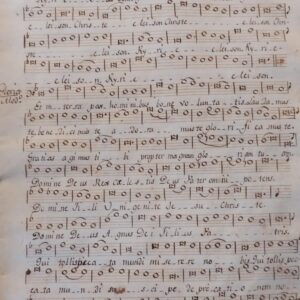 e _ lei _ son. Christe _ _ _ e _ lei _ son. Chri
ste _ _ _ e _ lei son. Ky _ ri _ _ e _ lei son. Ky _ ri _ e
e lei son. Ky ri e _ _ _ e lei son.
Et in terra pax ho mi ni bus bo næ vo lun _ ta _ tis. Lauda mus
te. be ne di ci mus te. a _ do ra _ mus te. glo _ ri _ fi ca mus te.
Gratias a gimus ti bi propter magnam glo _ ri am tu
Domi ne De us Rex cæ les _ tis De us Pa ter om ni po _ tens.
Do mi ne Fi li U _ ni ge ni te Je _ su _ Chris _ te.
Domi ne De us A gnus De i Fi li us Pa _ _ tris.
Qui tollis pecca _ ta mundi mi se re re no _ _ bis. Qui tollis pec
ca ta mun _ di su _ sci _ pe de pre ca ti o nem nos